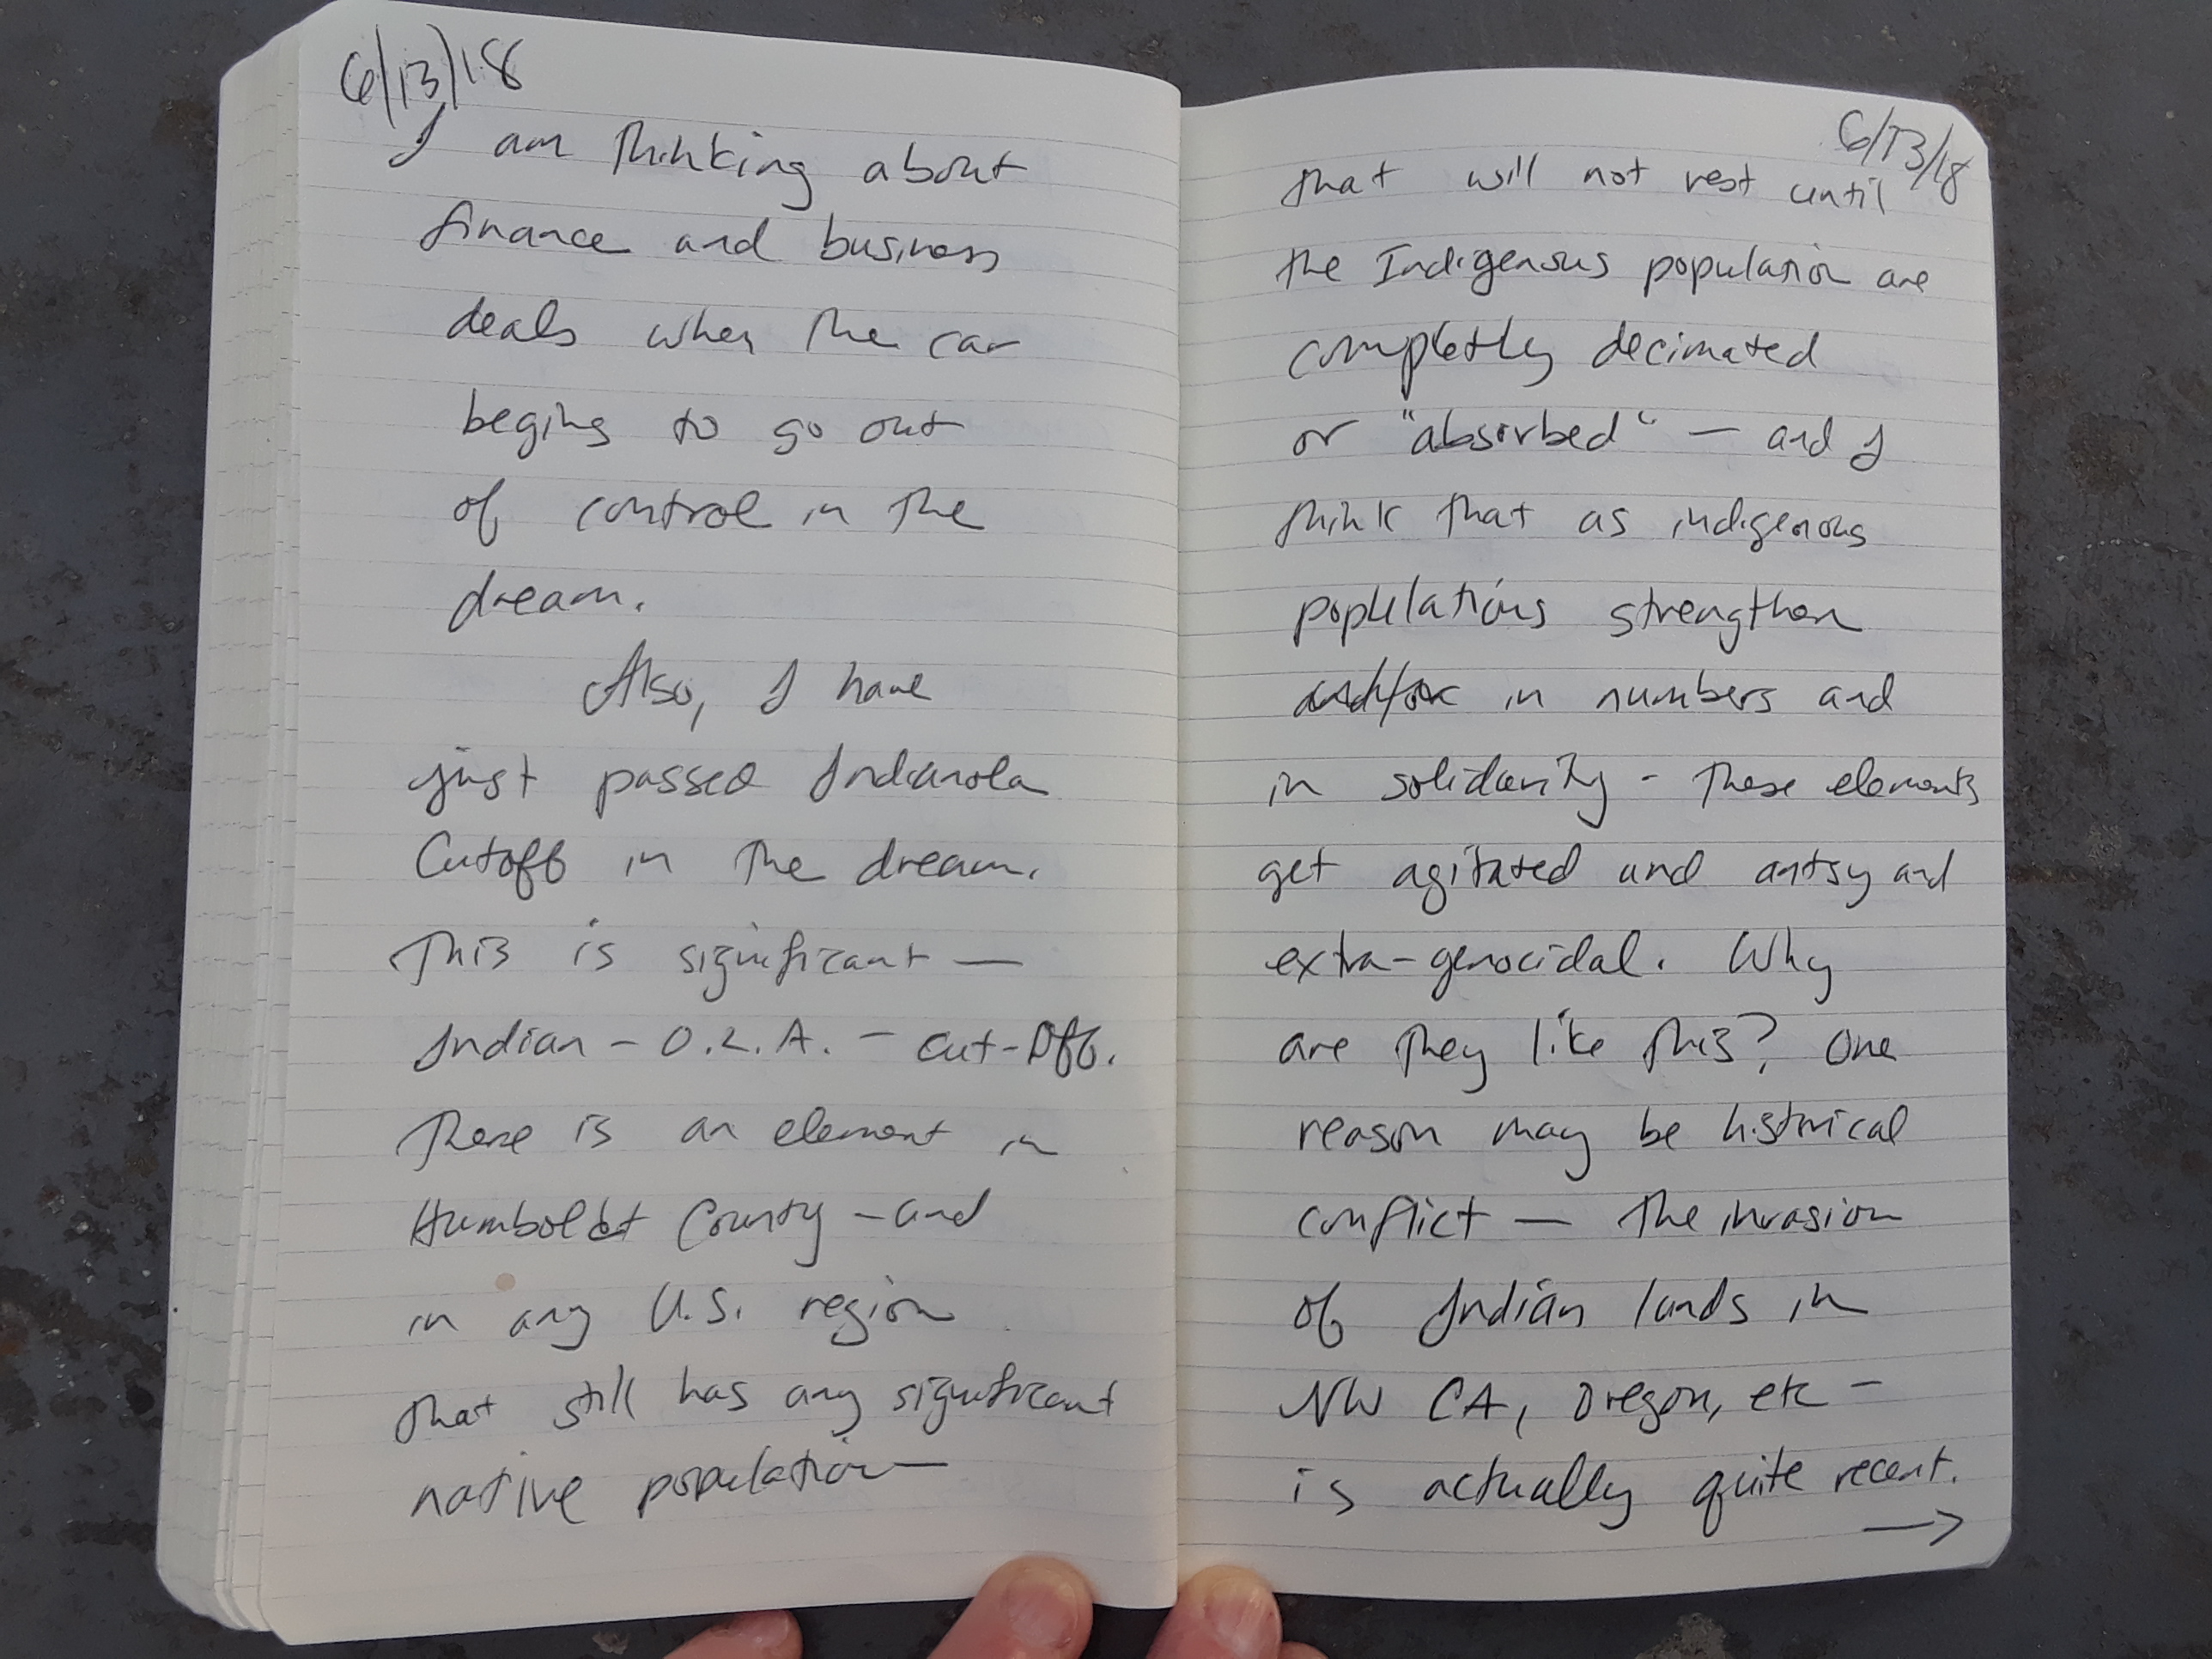 6/13/18
I am thinking about
finance and business
deals when the car
begins to go out
of control in the
dream.
Also, I have
just passed Indianola
Cutoff in the dream.
This is significant —
Indian - O.L.A. - cut-Off.
There is an element in
Humboldt County - and
in any U.S. region
that still has any significant
native population —
6/13/18
that will not rest until
the Indigenous population are
completly decimated
or "absorbed" — and I
think that as indigenous
populations strengthen
in numbers and
in solidarity - these elements
get agitated and antsy and
extra-genocidal. Why
are they like this? One
reason may be historical
conflict — the invasion
of Indian lands in
NW CA, Oregon, etc -
is actually quite recent.
→